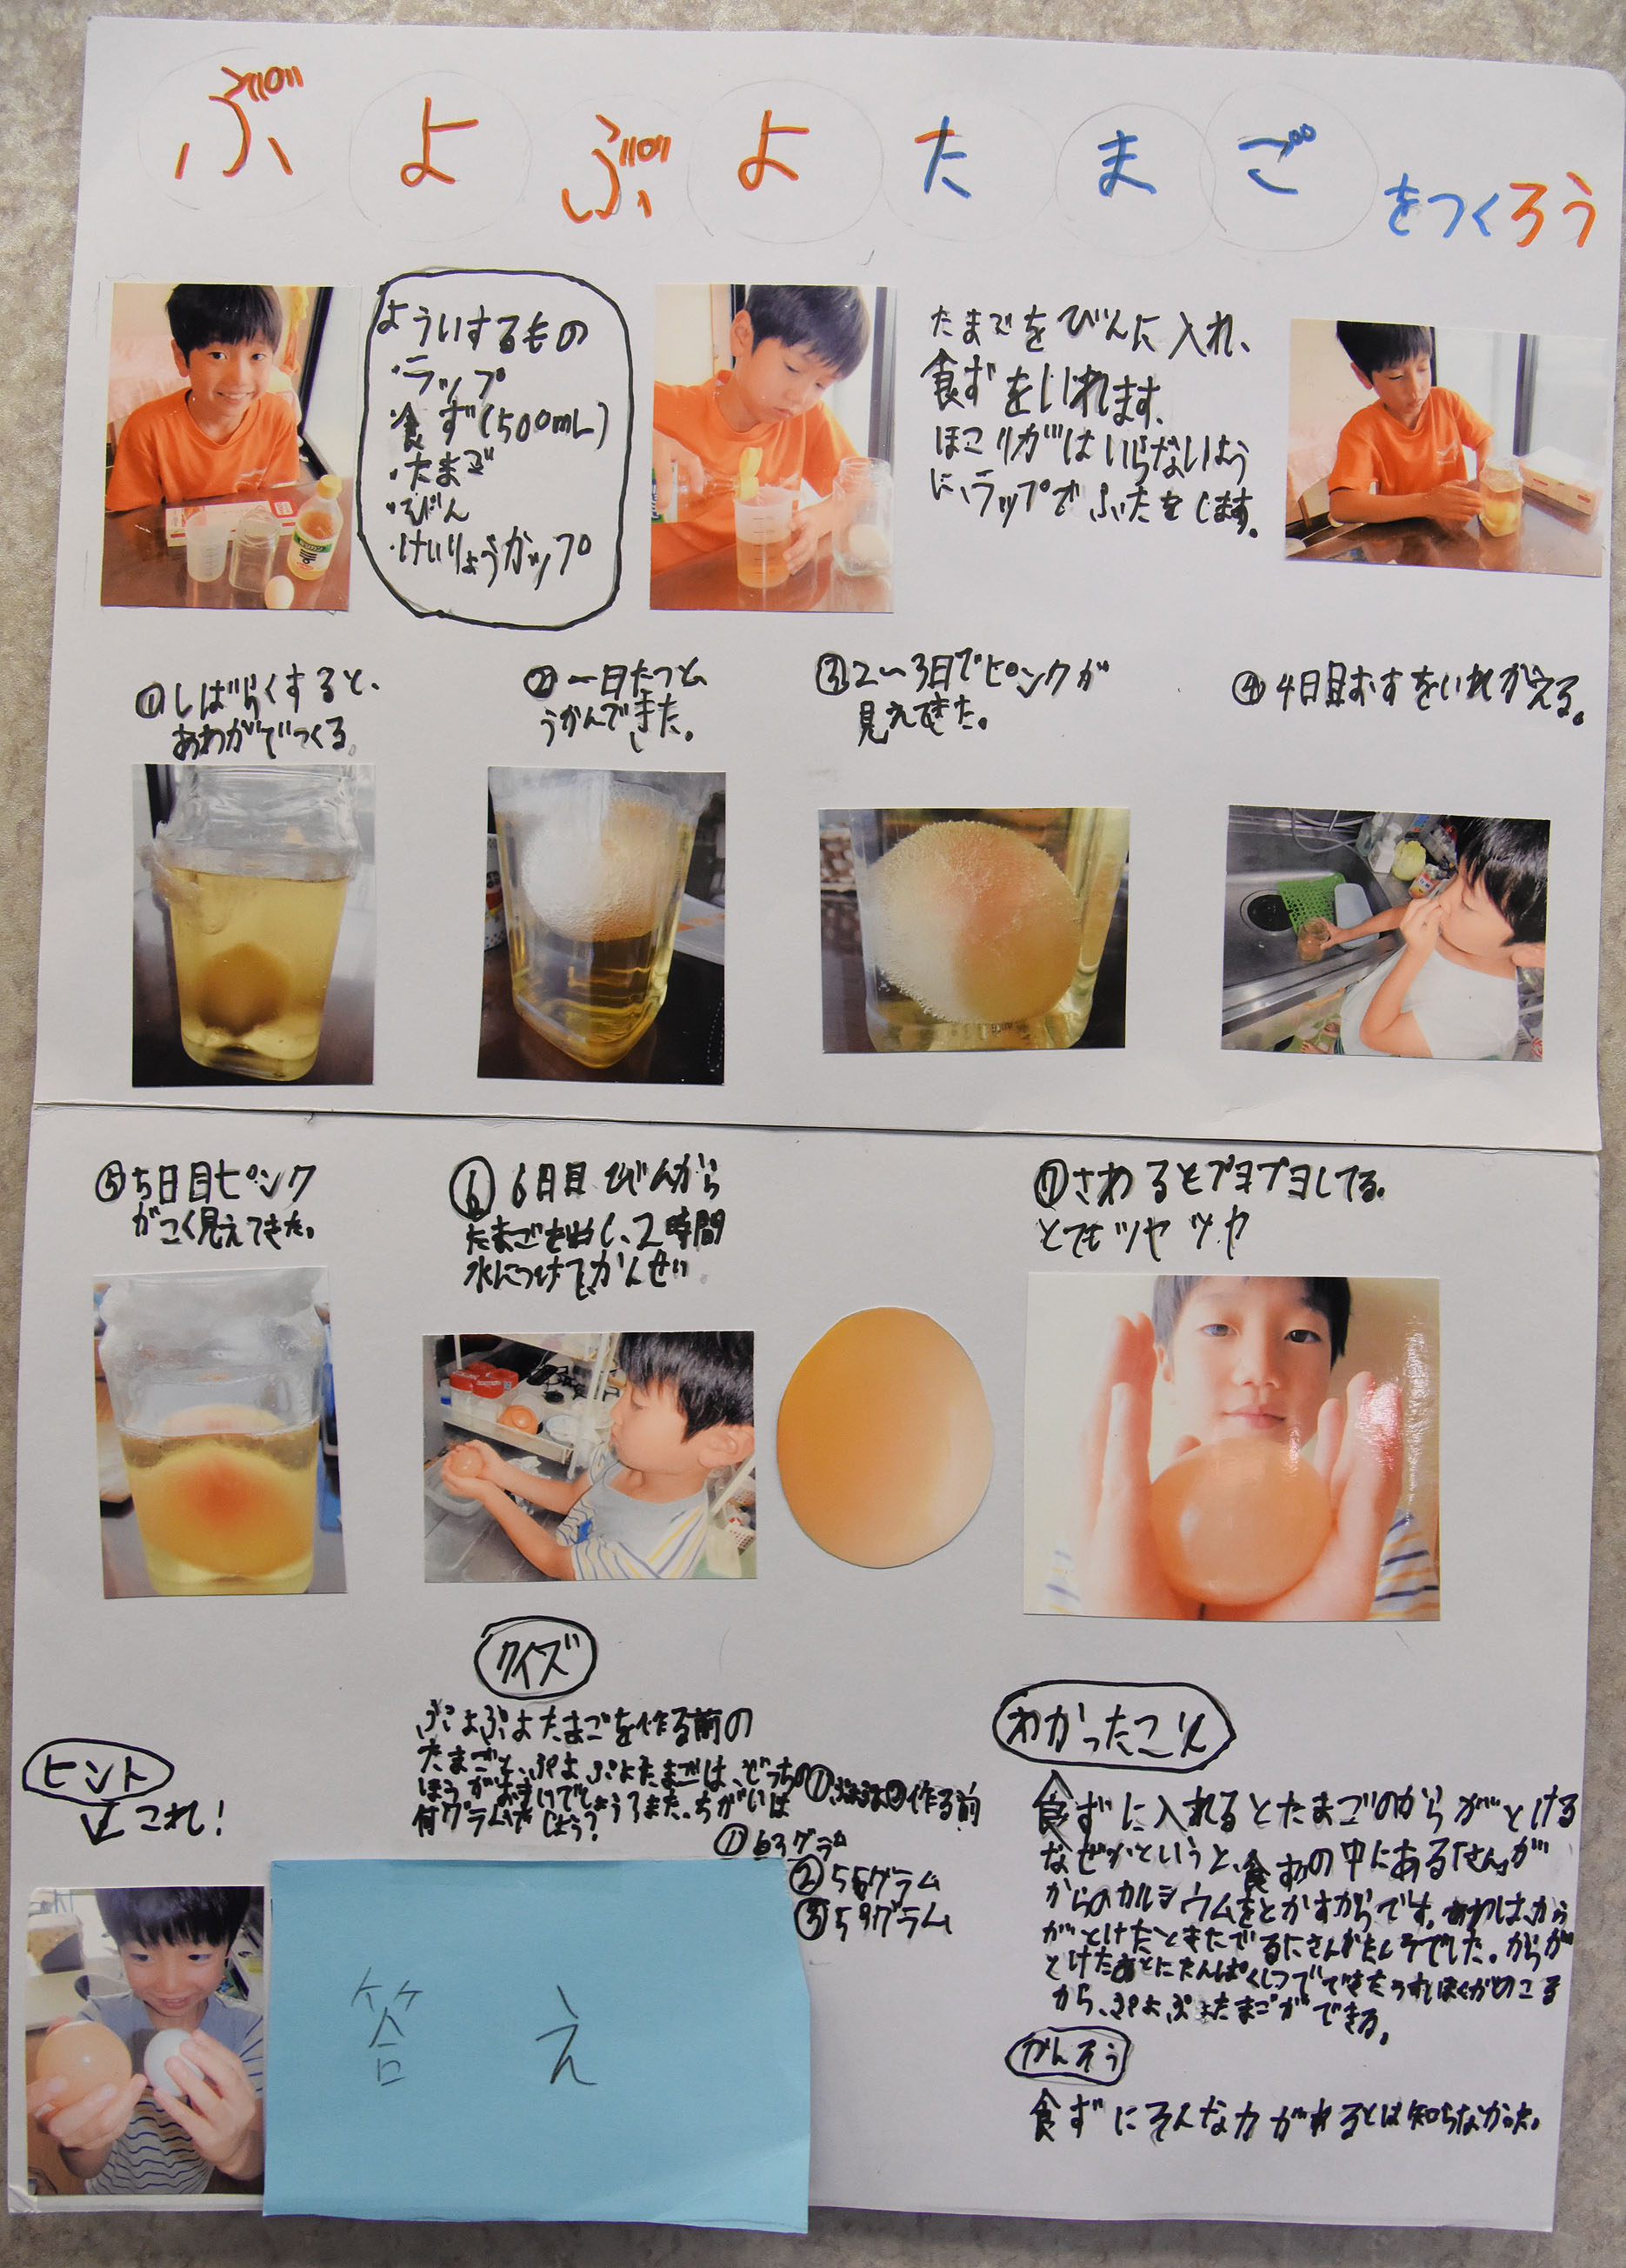 ぶよぶよたまごをつくろう
よういするもの
・ラップ
・食ず(500mL)
・たまご
・びん
・けいりょうカップ
たまごをびんに入れ、
食ずをいれます。
ほこりがはいらないよう
に、ラップでふたをします。
①しばらくすると、
あわがでつくる。
②一日たつと
うかんできた。
③2〜3日でピンクが
見えてきた。
④4日目おすをいれかえる。
⑤5日目ピンク
がこく見えてきた。
⑥6日目びんから
たまごを出し、2時間
水につけてかんせい
⑦さわるとブヨブヨしてる。
とてもツヤツヤ
クイズ
ぶよぷよたまごを作る前の
たまごと、ぷよぷよたまごは、どっちの
ほうがおもいでしょう?また、ちがいは
何グラムでしょう?
②作る前
①63グラム
②55グラム
③59グラム
ヒント
これ!
答え
わかったこと
食ずに入れるとたまごのからがとける
なぜかというと、食ずの中にある「さん」が
からのカルシウムをとかすからです。あわは、から
がとけたときにでるにさんかたんそでした。からが
とけたあとにたんぱくしつでできたうすいまくがのこる
から、ぷよぷよたまごができる。
かんそう
食ずにそんな力があるとは知らなかった。